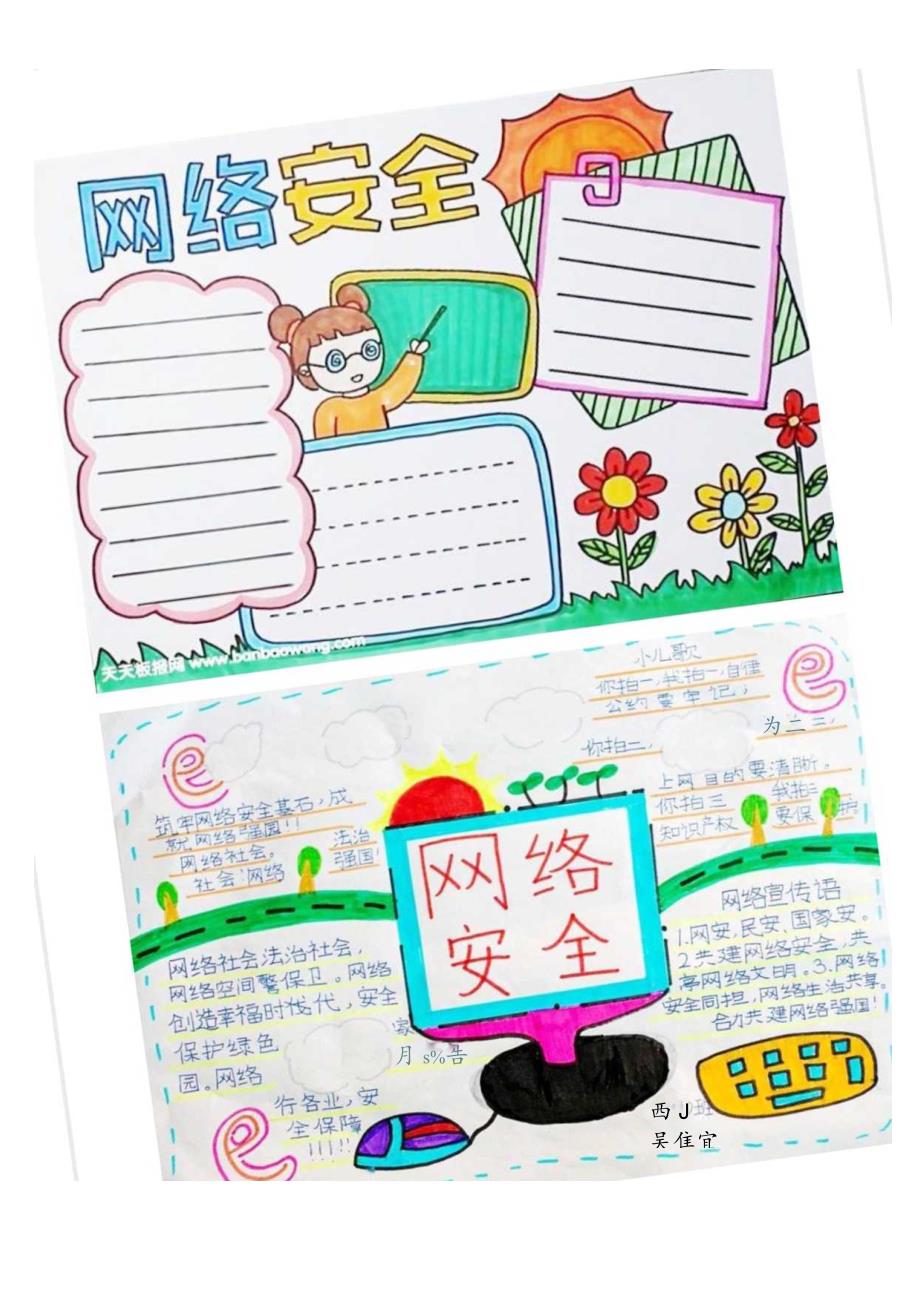 网络安全
天天板报网 www.banbaowang.com
小儿歌
你拍一,我拍一,自律
公约要牢记;
你拍二,
为二三,
上网目的要清晰。
你拍三
我拍三
知识产权
要保护
筑牢网络安全基石,成
就网络强国!!
网络社会。
社会网络
法治
强国!
网络
安全
网络社会法治社会,
网络空间警保卫。网络
创造幸福时代,安全
保护绿色
家
月 s%告
园。网络
行各业,安
全保障
!!!!!
网络宣传语
1.网安,民安,国家安。
2.共建网络安全,共
享网络文明。3.网络
安全同担,网络生活共享。
合力共建网络强国!
西 J 班
吴住宜